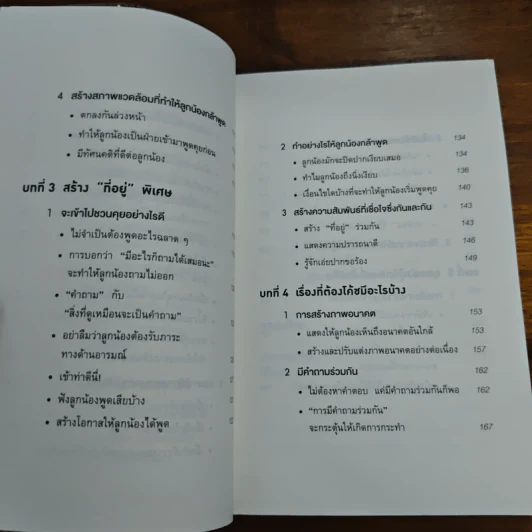 4 สร้างสภาพแวดล้อมที่ทำให้ลูกน้องกล้าพูด
• ตกลงกันล่วงหน้า
• ทำให้ลูกน้องเป็นฝ่ายเข้ามาพูดคุยก่อน
• มีทัศนคติที่ดีต่อลูกน้อง
บทที่ 3 สร้าง “ที่อยู่” พิเศษ
1 จะเข้าไปชวนคุยอย่างไรดี
• ไม่จำเป็นต้องพูดอะไรฉลาด ๆ
• การบอกว่า “มีอะไรก็ถามได้เสมอนะ”
จะทำให้ลูกน้องถามไม่ออก
• “คำถาม” กับ
“สิ่งที่ดูเหมือนจะเป็นคำถาม”
• อย่าลืมว่าลูกน้องต้องรับภาระ
ทางด้านอารมณ์
• เข้าท่าดีนี่!
• ฟังลูกน้องพูดเสียบ้าง
• สร้างโอกาสให้ลูกน้องได้พูด
2 ทำอย่างไรให้ลูกน้องกล้าพูด 134
• ลูกน้องมักจะปิดปากเงียบเสมอ 134
• ทำไมลูกน้องถึงนิ่งเงียบ 136
• เงื่อนไขใดบ้างที่จะทำให้ลูกน้องเริ่มพูดคุย 140
3 สร้างความสัมพันธ์ที่เชื่อใจซึ่งกันและกัน 143
• สร้าง “ที่อยู่” ร่วมกัน 143
• แสดงความปรารถนาดี 146
• รู้จักเอ่ยปากขอร้อง 149
บทที่ 4 เรื่องที่ต้องโค้ชมีอะไรบ้าง
1 การสร้างภาพอนาคต 153
• แสดงให้ลูกน้องเห็นถึงอนาคตอันใกล้ 153
• สร้างและปรับแต่งภาพอนาคตอย่างต่อเนื่อง 157
2 มีคำถามร่วมกัน 162
• ไม่ต้องหาคำตอบ แค่มีคำถามร่วมกันก็พอ 162
• “การมีคำถามร่วมกัน”
จะกระตุ้นให้เกิดการกระทำ 167